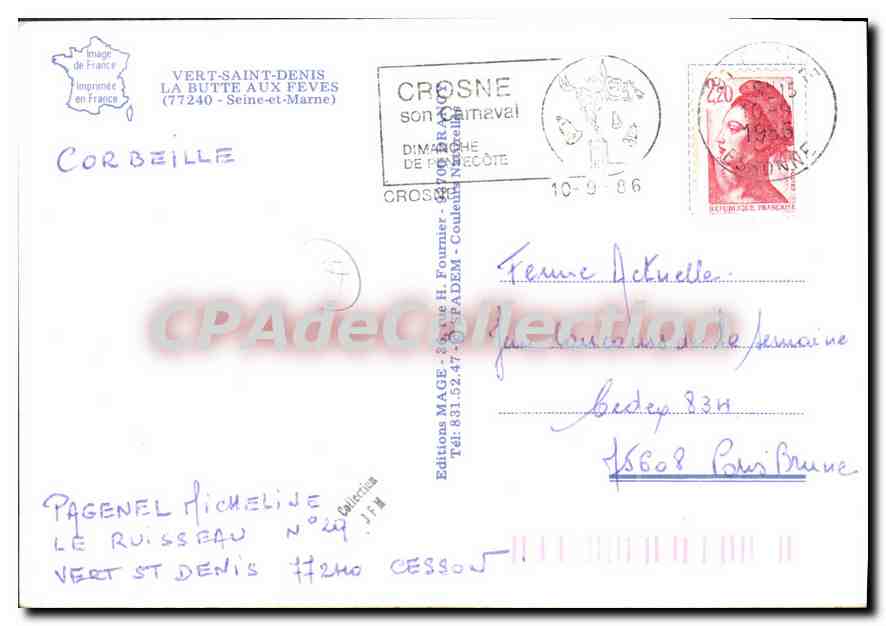 Image
de France
Imprimée
en France
VERT-SAINT-DENIS
LA BUTTE AUX FEVES
(77240 - Seine-et-Marne)
CORBEILLE
CROSNE
son Carnaval
DIMANCHE
DE PENTECÔTE
CROSNE
10-9-86
2,20
REPUBLIQUE FRANÇAISE
15
1986
ESSONNE
Editions MAGE - rue H. Fournier -
Tél: 831.52.47 - © SPADEM - Couleurs Naturelles
CPAdeCollection
Femme Actuelle.
Jeu Concours de la semaine
Cedex 83H
75608 Paris Brune
Collection
J F M
PAGENEL MICHELINE
LE RUISSEAU N° 29.
VERT ST DENIS 77240 CESSON